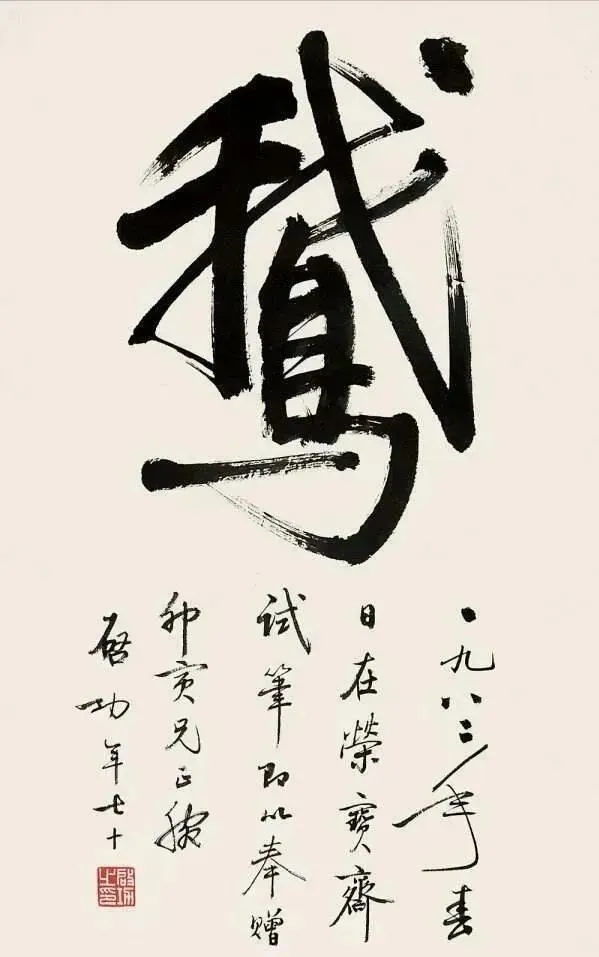 鵝
一九八二年春
日在榮寶齋
試筆即以奉贈
寅兄正腕
启功年七十
啟功之印